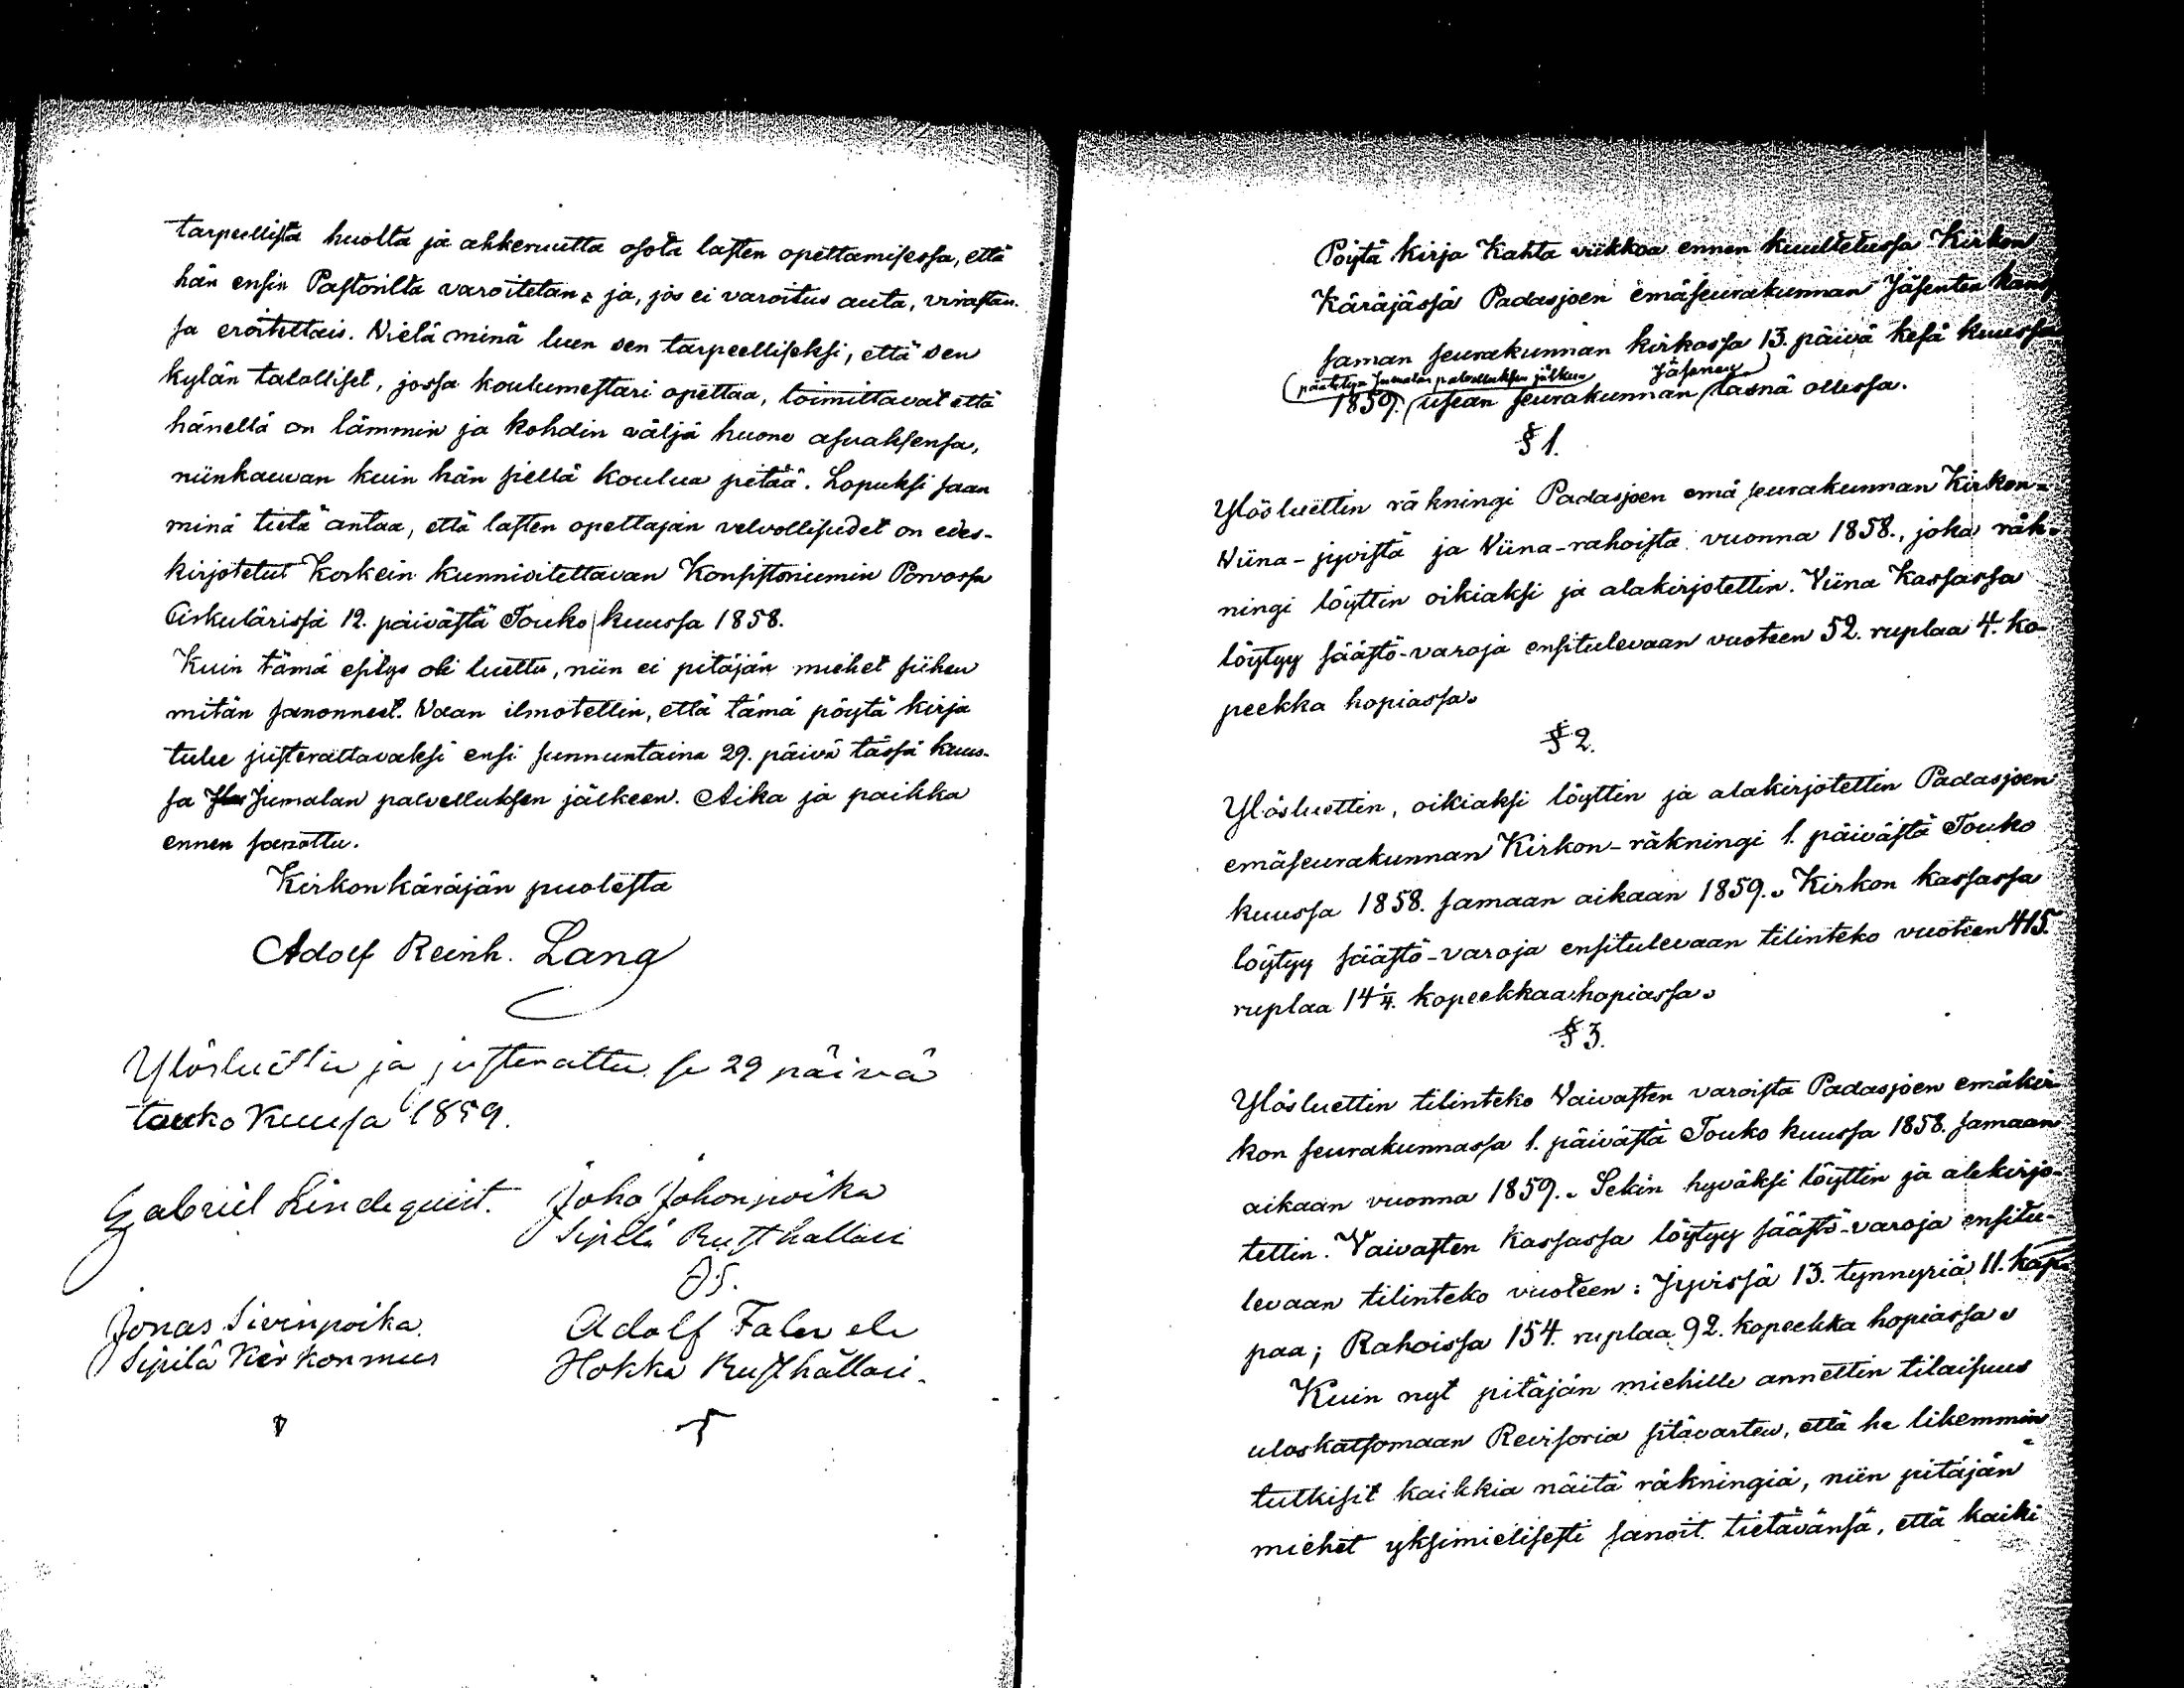 tarpeellista huolta ja ahkeruutta osota lasten opettamisessa, että
hän ensin Pastorilta varoitetan, ja, jos ei varoitus auta, virastan-
sa eroitettais. Vielä minä luen sen tarpeelliseksi, että sen
kylän talolliset, jossa koulumestari opettaa, toimittavat että
hänellä on lämmin ja kohdin väljä huone asuaksensa,
niinkauvan kuin hän siellä koulua pitää. Lopuksi saan
minä tietä antaa, että lasten opettajan velvollisudet on edes-
kirjotetut Korkein kunnivoitettavan Konsistoriumin Porvossa
Cirkulärissä 12. päivästä Touko kuussa 1858.
Kuin tämä esitys oli luettu, niin ei pitäjän miehet siihen
mitän sanonneet. Vaan ilmotettin, että tämä pöytä kirja
tulee justerattavaksi ensi sunnuntaina 29. päivä tässä kuus-
sa Jumalan palvelluksen jälkeen. Aika ja paikka
ennen sanottu.
Kirkonkäräjän puolesta
Adolf Reinh. Lang
Ylösluettu ja justerattu se 29 päivä
touko kuusa 1859.
Gabriel Lindequist. Joho Johonpoika
Sipilä Rusthallari
Jonas Sivinpoika Adolf
Sipilä Kirkonmies Hokka Rusthållari.
Pöytä kirja Kahta viikkoa ennen kuulletussa Kirkon
Käräjässä Padasjoen emäseurakunnan Jäsenten kans
saman seurakunnan kirkossa 13. päivä kesä kuussa
päätetyn Jumalan palvelluksen jälkeen Jäsenen
1859. usean seurakunnan läsnä ollessa.
§ 1.
Ylösluettin räkningi Padasjoen emä seurakunnan Kirkon-
Viina-jyvistä ja Viina-rahoista vuonna 1858., joka räk-
ningi löyttin oikiaksi ja alakirjotettin. Viina Kassassa
löytyy säästö-varoja ensitulevaan vuoteen 52. ruplaa 4. ko-
peekka hopiassa.
§ 2.
Ylösluettin, oikiaksi löyttin ja alakirjotettin Padasjoen
emäseurakunnan Kirkon-räkningi 1. päivästä Touko
kuussa 1858. samaan aikaan 1859. Kirkon kassassa
löytyy säästö-varoja ensitulevaan tilinteko vuoteen 415.
ruplaa 14 1/4. kopeekkaa hopiassa.
§ 3.
Ylösluettin tilinteko Vaivasten varoista Padasjoen emäkir-
kon seurakunnassa 1. päivästä Touko kuussa 1858. samaan
aikaan vuonna 1859. Sekin hyväksi löyttin ja alekirjo-
tettin. Vaivasten Kassassa löytyy säästö-varoja ensitu-
levaan tilinteko vuoteen: Jyvissä 13. tynnyriä 11. kap-
paa; Rahoissa 154. ruplaa 92. kopeekka hopiassa.
Kuin nyt pitäjän miehille annettin tilaisuus
uloskatsomaan Revisoria sitävarten, että he likemmin
tutkisit kaikkia näitä räkningiä, niin pitäjän
miehet yksimielisesti sanoit tietävänsä, että kaiki